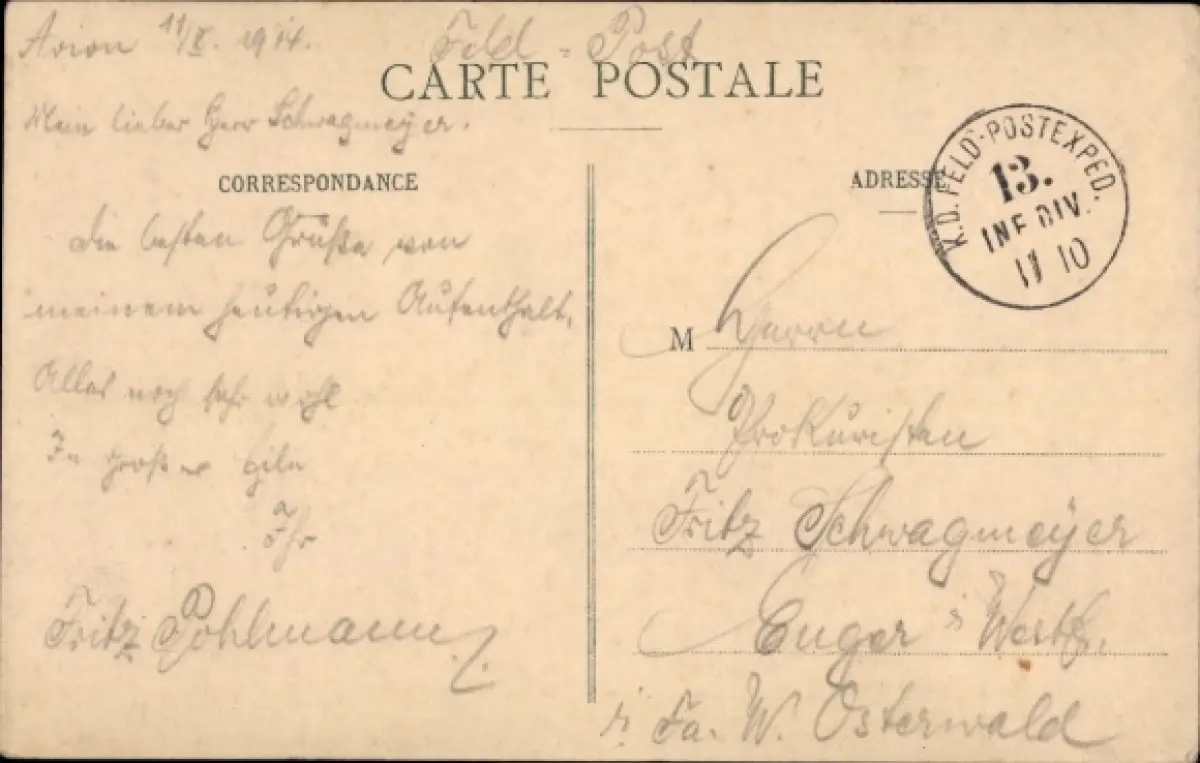 Avion 11/X. 1914.
Feld-Post
CARTE POSTALE
Mein lieber Herr Schwagmeyer.
CORRESPONDANCE
die besten Grüße von
meinem heutigen Aufenthalt.
Alles noch sehr wohl
In großer Eile
Ihr
Fritz Pohlmann
ADRESSE
K.D. FELD-POSTEXPED.
13.
INF. DIV.
11 10
M Herrn
Prokuristen
Fritz Schwagmeyer
Enger i Westf.
i. Fa. W. Osterwald